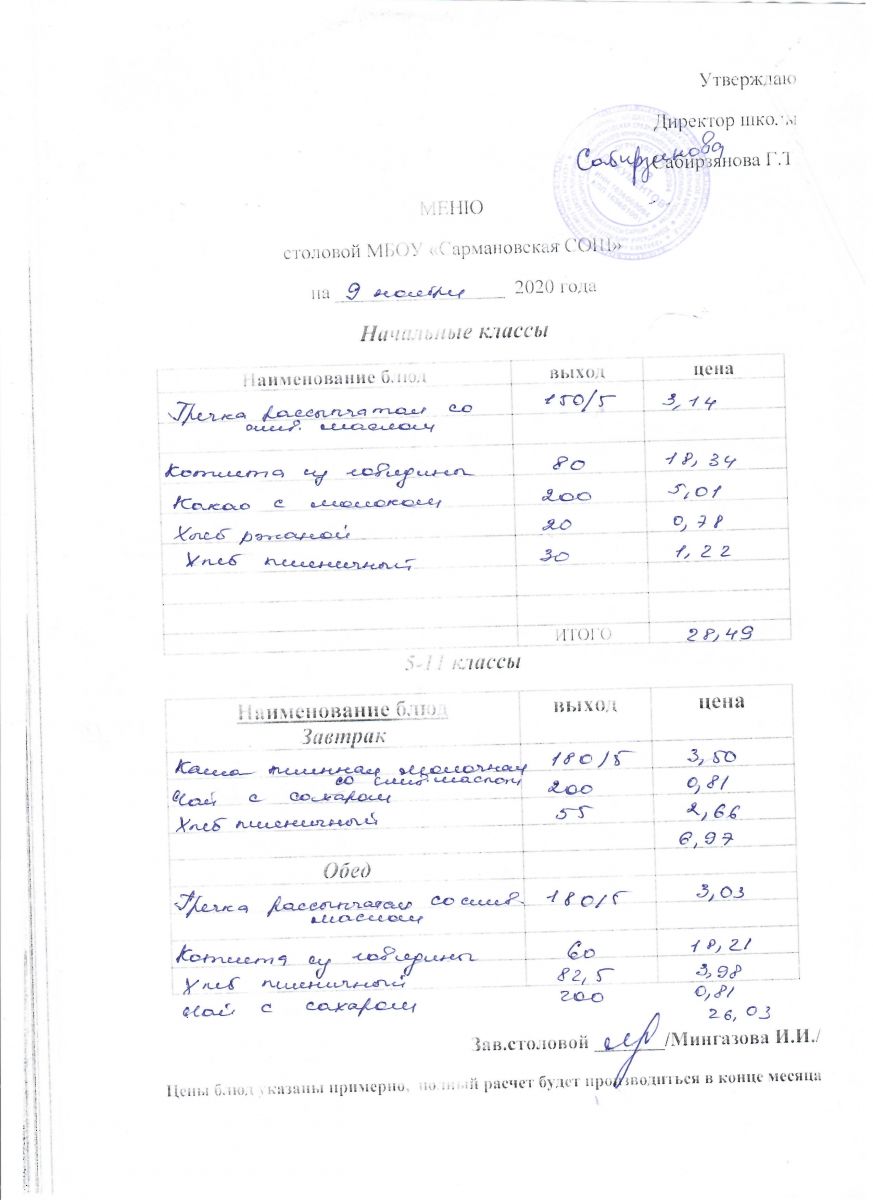 Утверждаю
Директор школы
Сабирзянова
Сабирзянова Г.Т
МЕНЮ
столовой МБОУ «Сармановская СОШ»
на 9 ноября 2020 года
Начальные классы
Наименование блюд выход цена
Гречка рассыпчатая со 150/5 3,14
слив. маслом
Котлета из говядины 80 18,34
Какао с молоком 200 5,01
Хлеб ржаной 20 0,78
Хлеб пшеничный 30 1,22
ИТОГО 28,49
5-11 классы
Наименование блюд выход цена
Завтрак
Каша пшенная молочная 180/5 3,50
со слив. маслом
Чай с сахаром 200 0,81
Хлеб пшеничный 55 2,66
6,97
Обед
Гречка рассыпчатая со слив. 180/5 3,03
маслом
Котлета из говядины 60 18,21
Хлеб пшеничный 82,5 3,98
Чай с сахаром 200 0,81
26,03
Зав.столовой /Мингазова И.И./
Цены блюд указаны примерно, полный расчет будет производиться в конце месяца